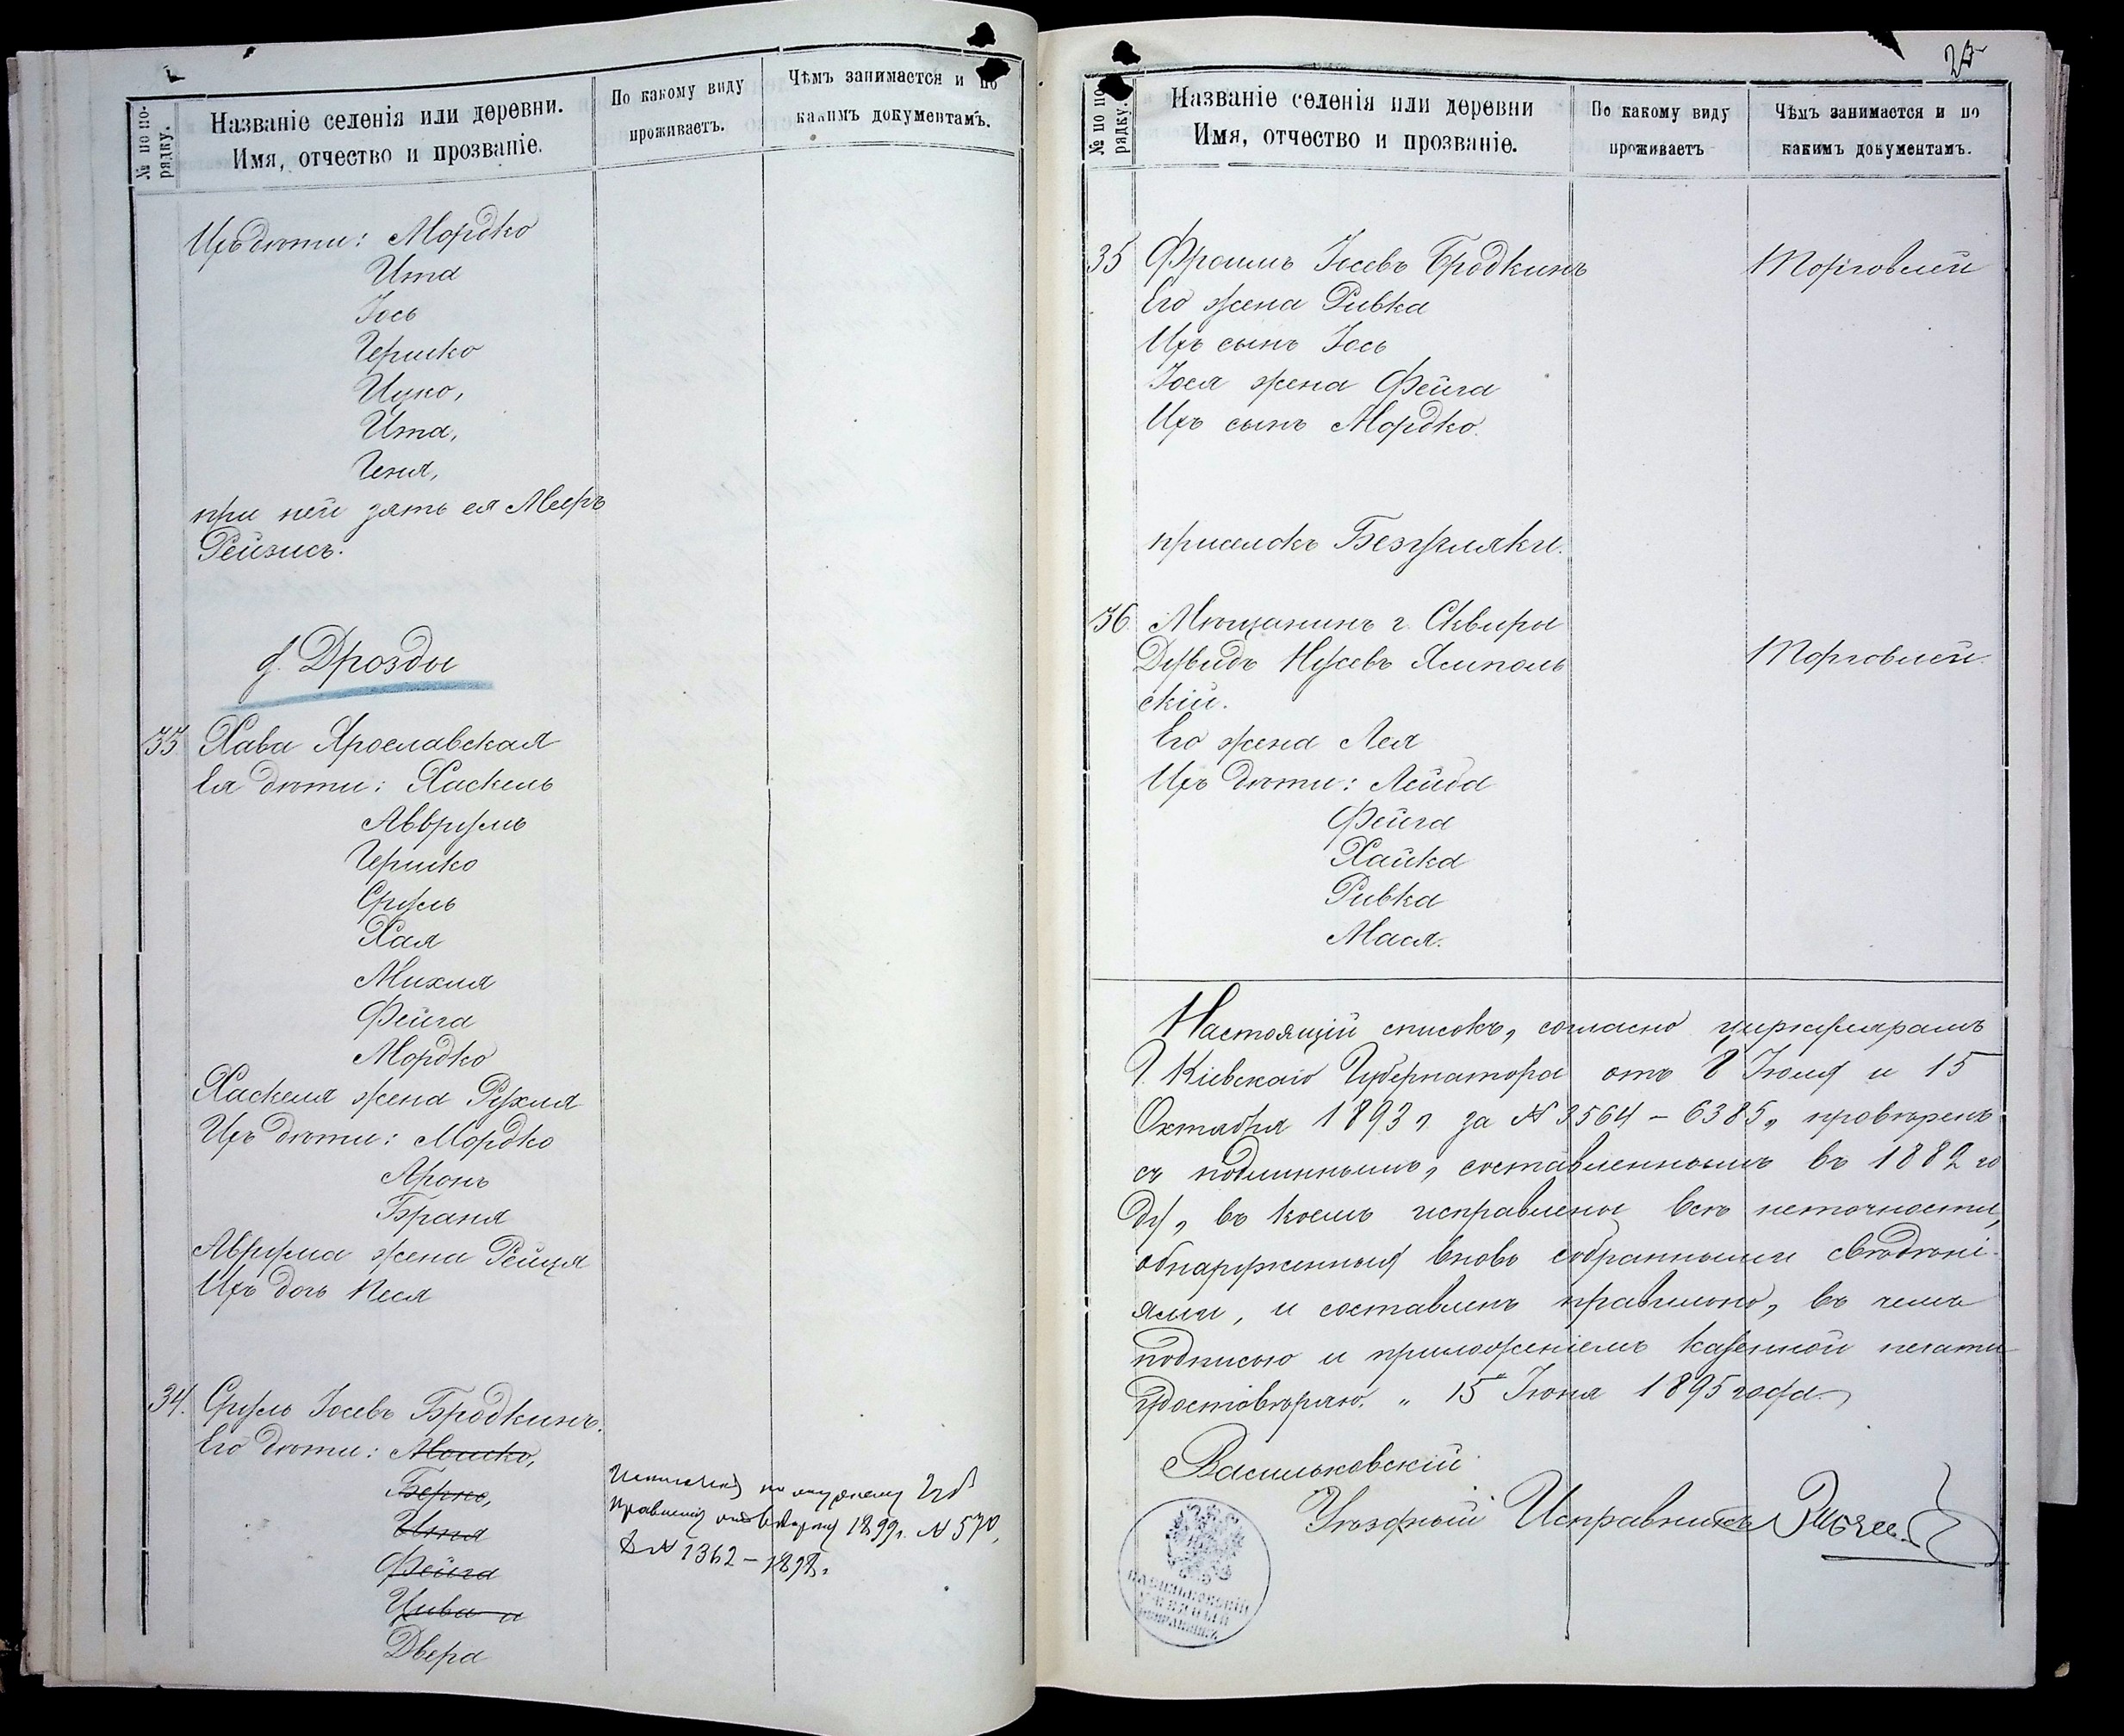 № по по-
рядку.
Названіе селенія или деревни.
Имя, отчество и прозваніе.
По какому виду
проживаетъ.
Чѣмъ занимается и по
какимъ документамъ.
Ихъ дѣти: Мордко
Ита
Іось
Гершко
Ицко,
Ита,
Геня,
при ней зять ея Мееръ
Рейзисъ.
д. Дрозды
33 Хава Ярославская
Ея дѣти: Хаскель
Аврумъ
Гершко
Сруль
Хая
Михля
Фейга
Мордко
Хаскеля жена Рухля
Ихъ дѣти: Мордко
Аронъ
Браня
Аврума жена Рейзя
Ихъ дочь Песя
34. Сруль Іосевъ Бродкинъ.
Его дѣти: Мошко,
Берко,
Фейга
Цива и
Двера
1899 г. № 570,
№ 1362 – 1898.
25
№ по по-
рядку.
Названіе селенія или деревни
Имя, отчество и прозваніе.
По какому виду
проживаетъ
Чѣмъ занимается и по
какимъ документамъ.
35 Фроимъ Іосевъ Бродкинъ Торговлей
Его жена Ривка
Ихъ сынъ Іось
Іося жена Фейга
Ихъ сынъ Мордко.
приселокъ Безугляки.
36 Мѣщанинъ г. Сквиры
Дувидъ Нусевъ Ямполь Торговлей.
скій.
Его жена Лея
Ихъ дѣти: Лейба
Фейга
Хайка
Ривка
Мася.
Настоящій списокъ, согласно циркулярамъ
Г. Кіевскаго Губернатора отъ 8 Іюля и 15
Октября 1893 г. за № 3564 – 6385, провѣренъ
съ подлиннымъ, составленнымъ въ 1882 го
ду, въ коемъ исправлены всѣ неточности,
обнаруженныя вновь собранными свѣдѣні-
ями, и составленъ правильно, въ чемъ
подписью и приложеніемъ казенной печати
удостовѣряю. „ 15 " Іюня 1895 года.
Васильковскій
Уѣздный Исправникъ